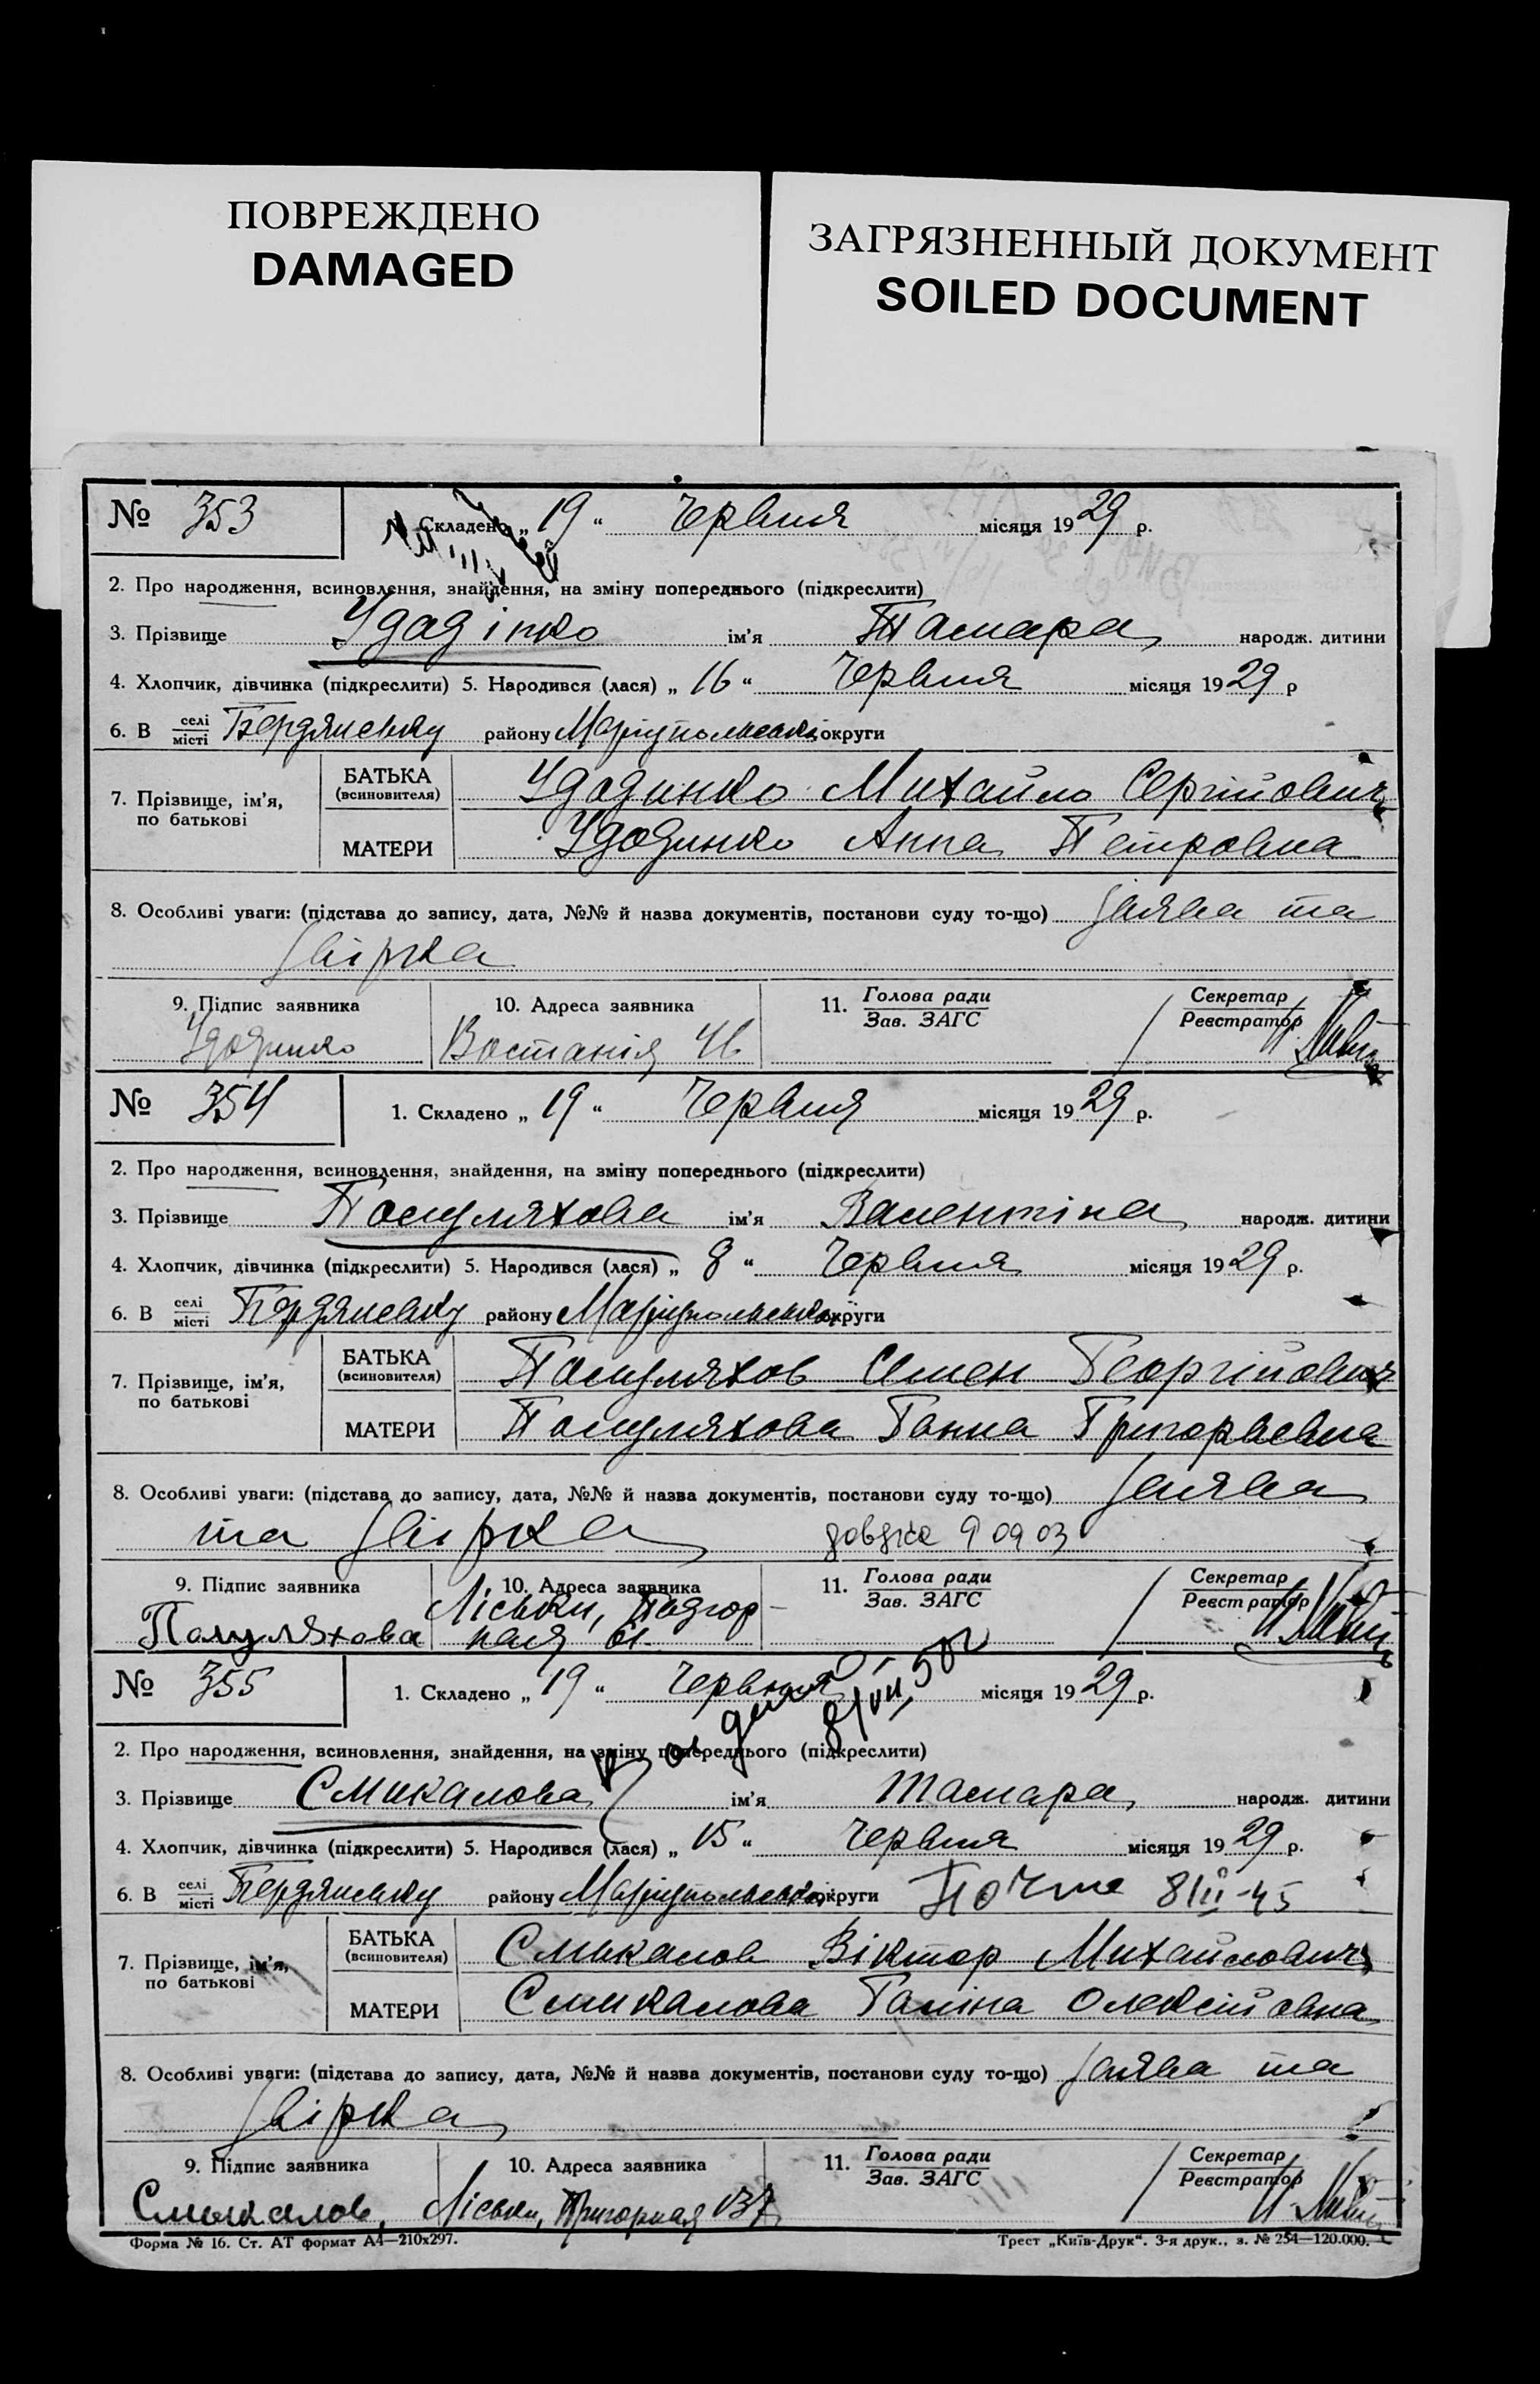 ПОВРЕЖДЕНО
DAMAGED
ЗАГРЯЗНЕННЫЙ ДОКУМЕНТ
SOILED DOCUMENT
№ 353 Складено „ 19 “ Червня місяця 1929 р.
2. Про народження, всиновлення, знайдення, на зміну попереднього (підкреслити)
3. Прізвище Удодінко ім’я Тамара народж. дитини
4. Хлопчик, дівчинка (підкреслити) 5. Народився (лася) „ 16 “ Червня місяця 1929 р
6. В селі місті Бердянську району Маріупольської округи
7. Прізвище, ім’я, по батькові
БАТЬКА (всиновителя) Удодинко Михайло Сергійович
МАТЕРИ Удодинко Анна Петровна
8. Особливі уваги: (підстава до запису, дата, №№ й назва документів, постанови суду то-що) Заява та
Звірка
9. Підпис заявника 10. Адреса заявника 11. Голова ради Зав. ЗАГС Секретар Реєстратор
Удодинко Востанія 46
№ 354 1. Складено „ 19 “ Червня місяця 1929 р.
2. Про народження, всиновлення, знайдення, на зміну попереднього (підкреслити)
3. Прізвище Полуляхова ім’я Валентіна народж. дитини
4. Хлопчик, дівчинка (підкреслити) 5. Народився (лася) „ 8 “ Червня місяця 1929 р.
6. В селі місті Бердянську району Маріупольської округи
7. Прізвище, ім’я, по батькові
БАТЬКА (всиновителя) Полуляхов Семен Георгійович
МАТЕРИ Полуляхова Ганна Григорьевна
8. Особливі уваги: (підстава до запису, дата, №№ й назва документів, постанови суду то-що) Заява
та Звірка довідка 9 09 03
9. Підпис заявника 10. Адреса заявника 11. Голова ради Зав. ЗАГС Секретар Реєстратор
Полуляхова Ліськи, Подгорная 61
№ 355 1. Складено „ 19 “ Червня місяця 1929 р.
8/VII 50г
2. Про народження, всиновлення, знайдення, на зміну попереднього (підкреслити)
3. Прізвище Смикалова ім’я Тамара народж. дитини
4. Хлопчик, дівчинка (підкреслити) 5. Народився (лася) „ 15 “ Червня місяця 1929 р.
6. В селі місті Бердянську району Маріупольської округи Почте 8/II-45
7. Прізвище, ім’я, по батькові
БАТЬКА (всиновителя) Смикалов Віктор Михайлович
МАТЕРИ Смикалова Галіна Олексіївна
8. Особливі уваги: (підстава до запису, дата, №№ й назва документів, постанови суду то-що) Заява та
Звірка
9. Підпис заявника 10. Адреса заявника 11. Голова ради Зав. ЗАГС Секретар Реєстратор
Смыкалов, Ліськи, Пригорная 137
Форма № 16. Ст. АТ формат А4—210х297.
Трест „Київ-Друк“. 3-я друк., з. № 254—120.000.